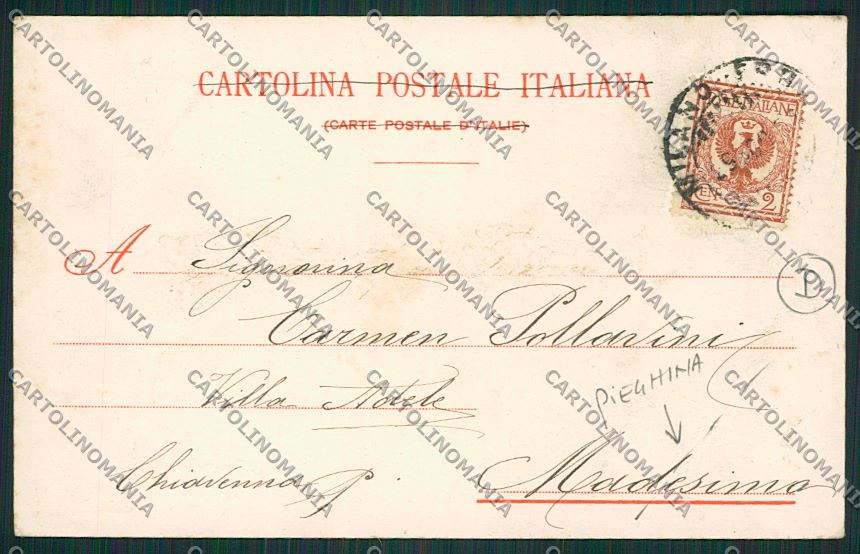 CARTOLINA POSTALE ITALIANA
(CARTE POSTALE D'ITALIE)
MILANO
POSTE ITALIANE
CEN. 2
A Signorina
Carmen Pollavini
Villa Adele
PIEGHINA
Chiavenna p Madesimo
P
CARTOLINOMANIA